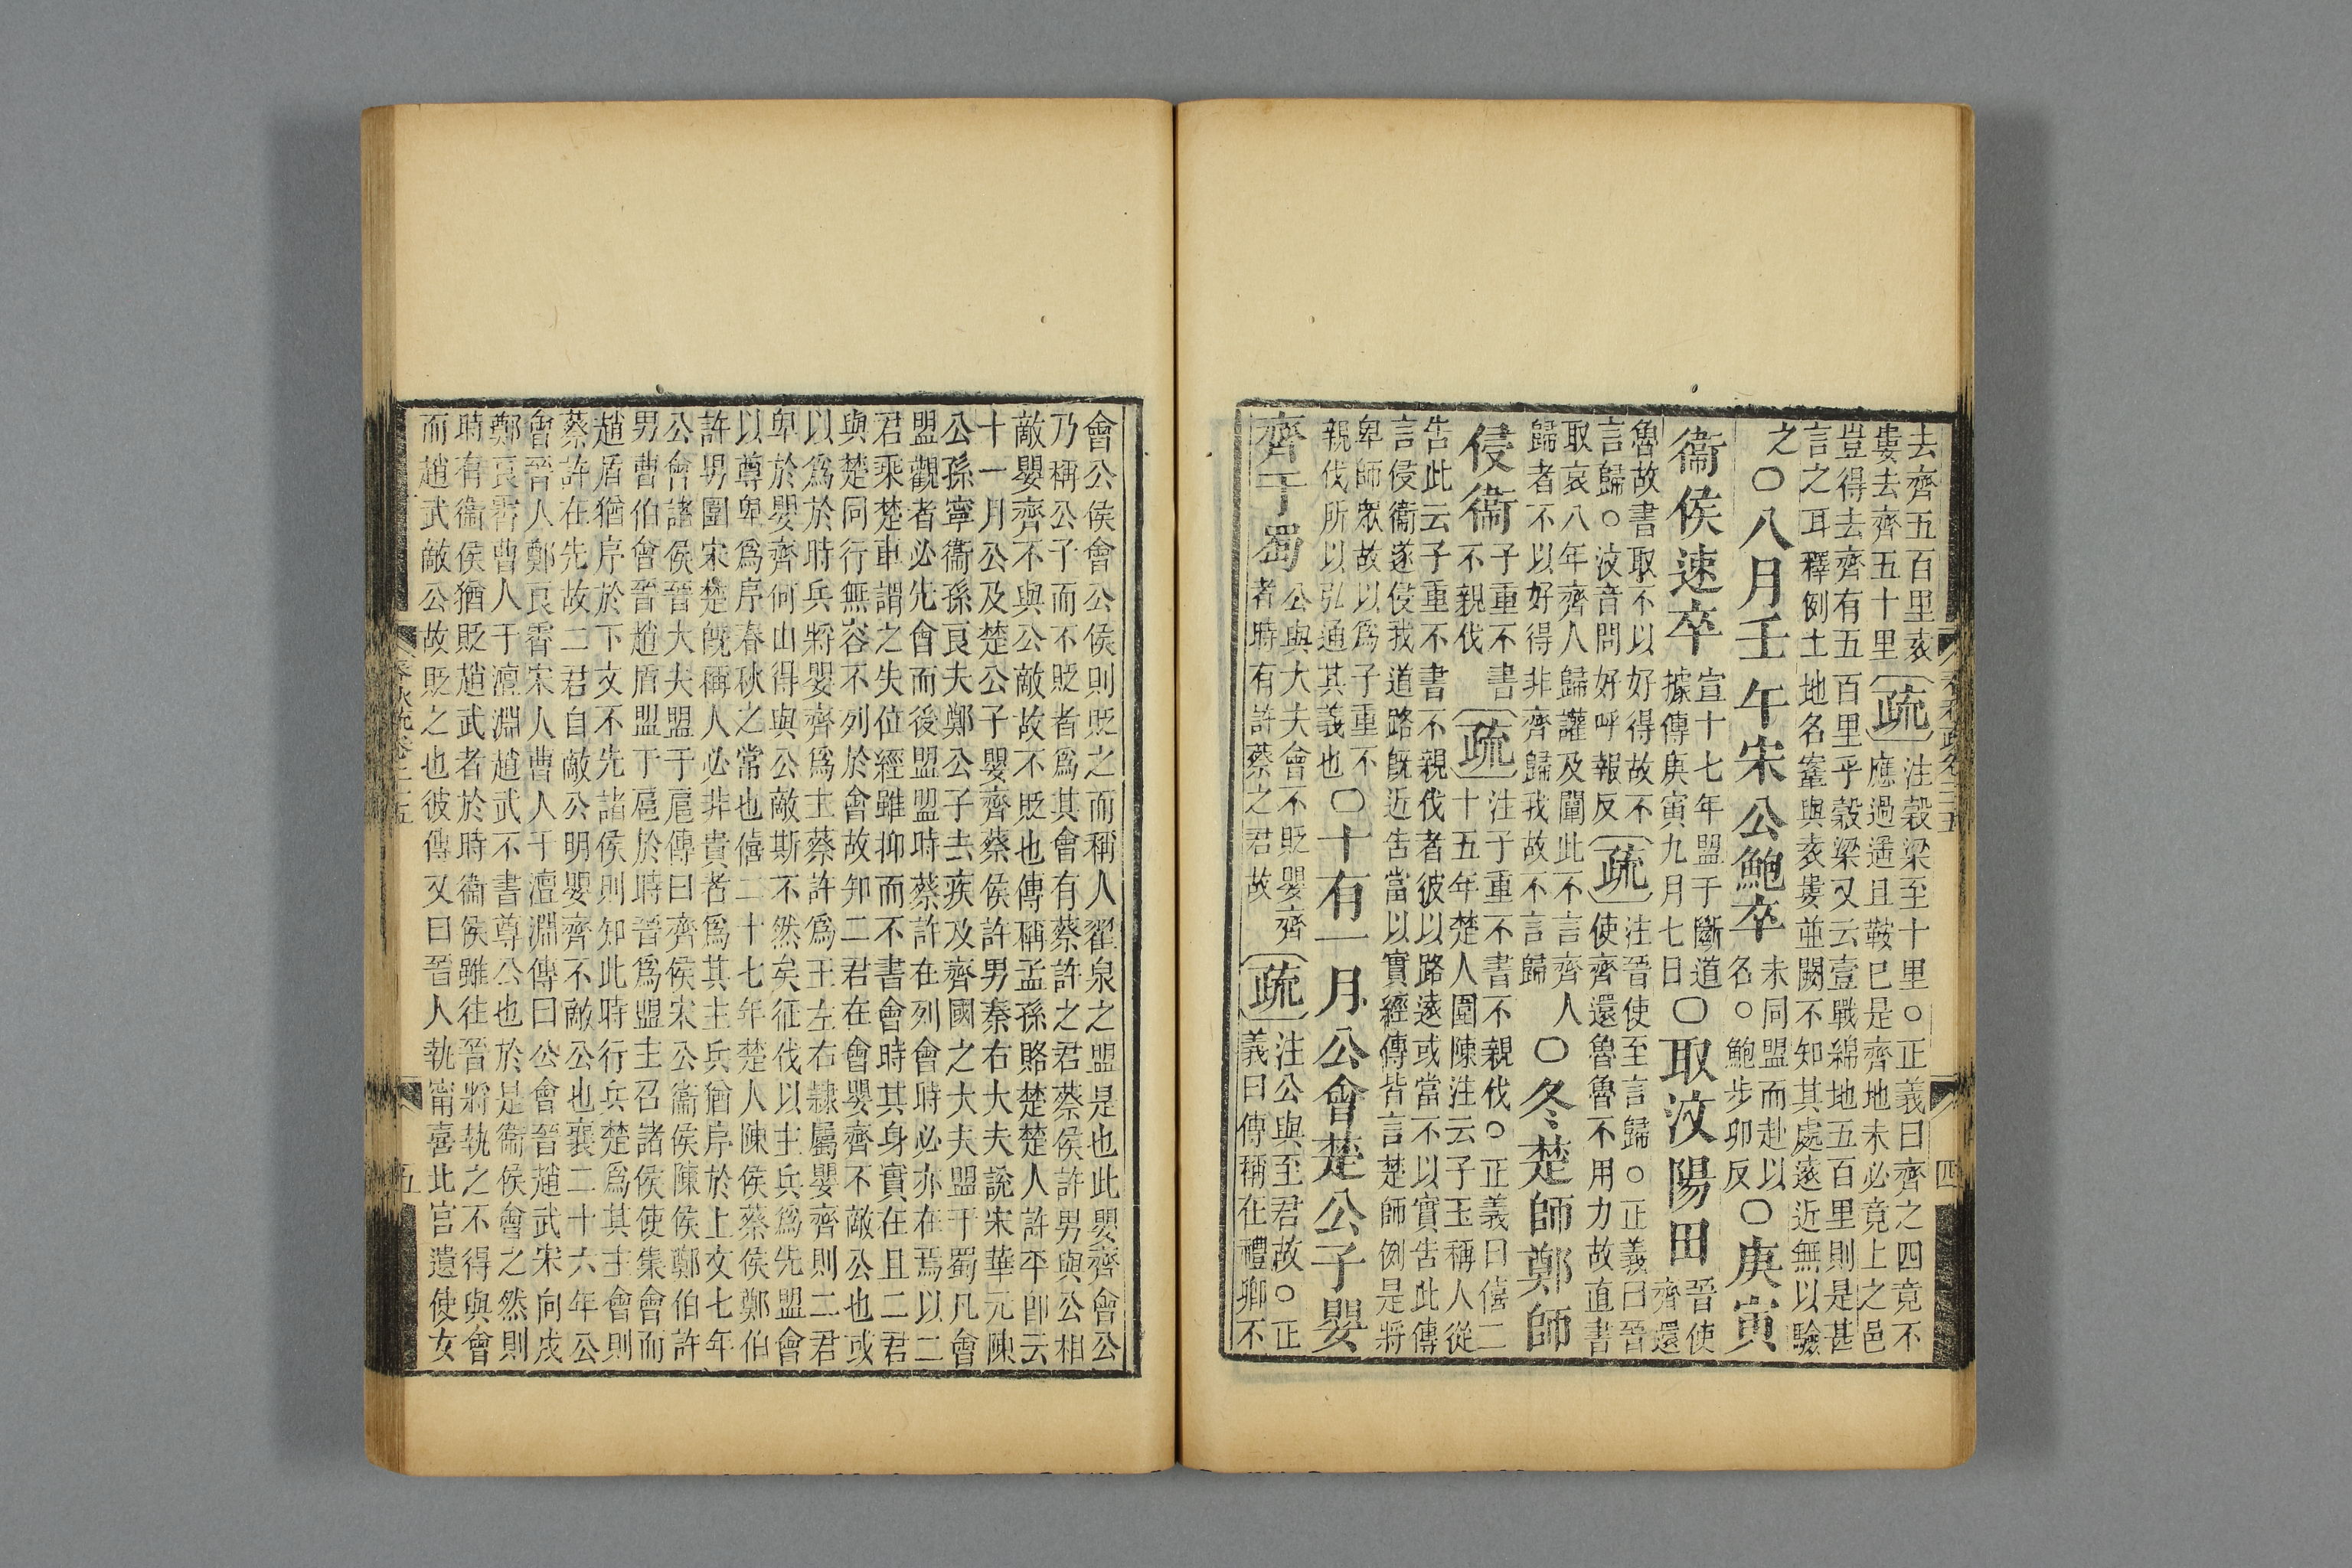 去齊五百里袁
婁去齊五十里
疏
注穀梁至十里○正義曰齊之四竟不
應過遥且鞌已是齊地未必竟上之邑
豈得去齊有五百里乎穀梁又云壹戰綿地五百里則是甚
言之耳釋例土地名鞌與袁婁並闕不知其處遠近無以驗
之○八月壬午宋公鮑卒
未同盟而赴以
名○鮑步卯反
○庚寅
衞侯速卒
宣十七年盟于斷道
據傳庚寅九月七日
○取汶陽田
晉使
齊還
魯故書取不以好得故不
言歸○汶音問好呼報反
疏
注晉使至言歸○正義曰晉
使齊還魯魯不用力故直書
取哀八年齊人歸讙及闡此不言齊人
歸者不以好得非齊歸我故不言歸
○冬楚師鄭師
侵衞
子重不書
不親伐
疏
注子重不書不親伐○正義曰僖二
十五年楚人圍陳注云子玉稱人從
告此云子重不書不親伐者彼以路遠或當不以實告此傳
言侵衞遂侵我道路旣近告當以實經傳皆言楚師例是將
卑師衆故以爲子重不
親伐所以弘通其義也
○十有一月公會楚公子嬰
齊于蜀
公與大夫會不貶嬰齊
者時有許蔡之君故
疏
注公與至君故○正
義曰傳稱在禮卿不
四
會公侯會公侯則貶之而稱人翟泉之盟是也此嬰齊會公
乃稱公子而不貶者爲其會有蔡許之君蔡侯許男與公相
敵嬰齊不與公敵故不貶也傳稱孟孫賂楚楚人許平卽云
十一月公及楚公子嬰齊蔡侯許男秦右大夫說宋華元陳
公孫寧衞孫良夫鄭公子去疾及齊國之大夫盟于蜀凡會
盟觀者必先會而後盟盟時蔡許在列會時必亦在焉以二
君乘楚車謂之失位經雖抑而不書會時其身實在且二君
與楚同行無容不列於會故知二君在會嬰齊不敵公也或
以爲於時兵將嬰齊爲主蔡許爲王左右隷屬嬰齊則二君
卑於嬰齊何山得與公敵斯不然矣征伐以主兵爲先盟會
以尊卑爲序春秋之常也僖二十七年楚人陳侯蔡侯鄭伯
許男圍宋楚旣稱人必非貴者爲其主兵猶序於上文七年
公會諸侯晉大夫盟于扈傳曰齊侯宋公衞侯陳侯鄭伯許
男曹伯會晉趙盾盟于扈於時晉爲盟主召諸侯使集會而
趙盾猶序於下文不先諸侯則知此時行兵楚爲其主會則
蔡許在先故二君自敵公明嬰齊不敵公也襄二十六年公
會晉人鄭良霄宋人曹人于澶淵傳曰公會晉趙武宋向戌
鄭良霄曹人于澶淵趙武不書尊公也於是衞侯會之然則
時有衞侯猶貶趙武者於時衞侯雖往晉將執之不得與會
而趙武敵公故貶之也彼傳又曰晉人執甯喜北宫遺使女
五